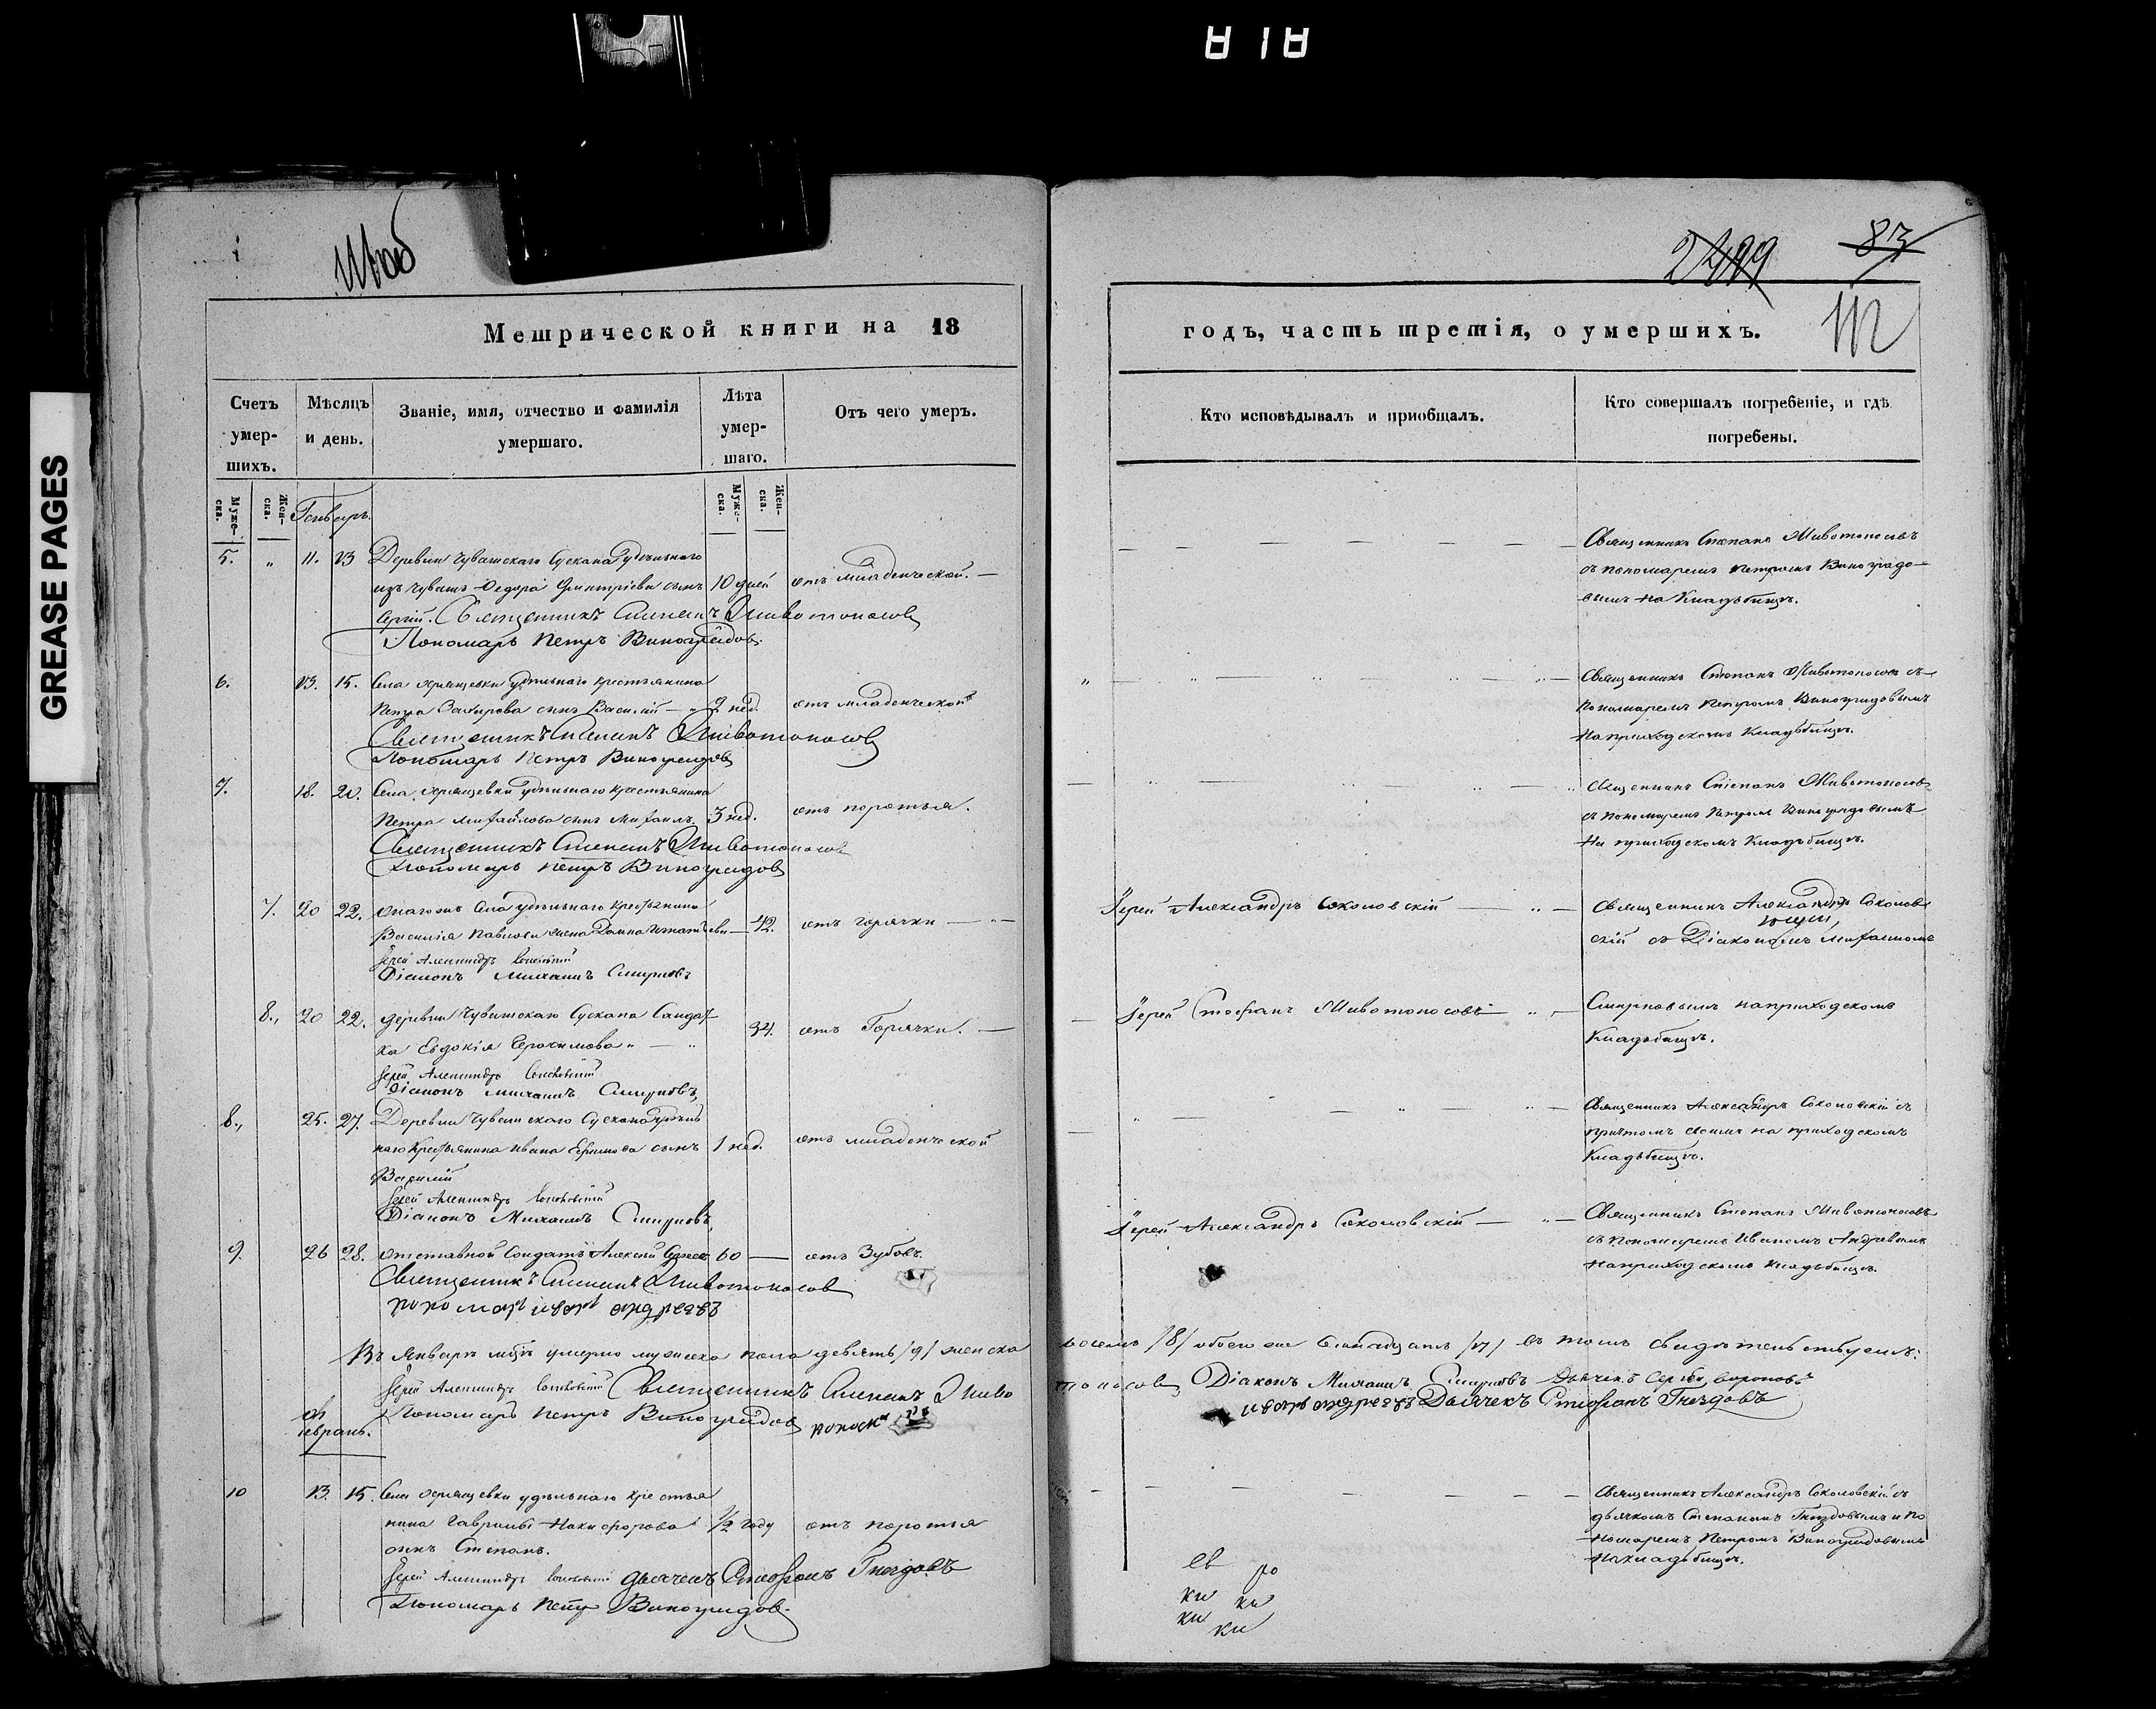 818
GREASE PAGES
83
112
Метрической книги на 18
годъ, часть третія, о умершихъ.
Счетъ умер-шихъ.
Мѣсяцъ и день.
Званіе, имя, отчество и фамилія умершаго.
Лѣта умер-шаго.
Отъ чего умеръ.
Кто исповѣдывалъ и пріобщалъ.
Кто совершалъ погребеніе, и гдѣ погребены.
Муже-ска.
Жен-ска.
Генварь.
Муже-ска.
Жен-ска.
5. " 11. 13 Деревни Чувашскаго Сускана удѣльнаго
изъ Чувашъ Федора Дмитріева сынъ 10 дней отъ младенческой.
Сергій. Священникъ Стефанъ Животоносовъ
Пономарь Петръ Виноградовъ
Священникъ Стефанъ Животоносовъ
съ пономаремъ Петромъ Виноградо-
вымъ на Кладбищѣ.
6. 13. 15. Села Хрящевки удѣльнаго крестьянина
Петра Захарова сынъ Василій 2 нед. отъ младенческой
Священникъ Стефанъ Животоносовъ
Пономарь Петръ Виноградовъ
Священникъ Стефанъ Животоносовъ съ
Пономаремъ Петромъ Виноградовымъ
на приходскомъ Кладбищѣ.
7. 18. 20. Села Хрящевки удѣльнаго крестьянина
Петра Михайлова сынъ Михаилъ 3 нед.
Священникъ Стефанъ Животоносовъ
Пономарь Петръ Виноградовъ
Священникъ Стефанъ Животоносовъ
съ пономаремъ Петромъ Виноградовымъ
на приходскомъ Кладбищѣ.
7. 20 22. Онагожъ Села удѣльнаго крестьянина
Василія Павлова жена Домна Игнатьева 42. отъ горячки
Іерей Александръ Соколовскій
Діаконъ Михаилъ Смирновъ
Іерей Александръ Соколовскій
Священникъ Александръ Соколов-
скій съ Діакономъ Михаиломъ
8. 20 22. Деревни Чувашскаго Сускана Солдат-
ка Евдокія Герасимова 34. отъ Горячки.
Іерей Александръ Соколовскій
Діаконъ Михаилъ Смирновъ
Іерей Стефанъ Животоносовъ
Смирновымъ на приходскомъ
Кладбищѣ.
8. 25. 27. Деревни Чувашскаго Сускана удѣль-
наго Крестьянина Ивана Ефимова сынъ 1 нед. отъ младенческой
Василій
Іерей Александръ Соколовскій
Діаконъ Михаилъ Смирновъ
Священникъ Александръ Соколовскій съ
причтомъ своимъ на приходскомъ
Кладбищѣ.
9. 26 28. Отставной Солдатъ Алексей 60 отъ Зубовъ.
Священникъ Стефанъ Животоносовъ
пономарь иванъ андреевъ
Іерей Александръ Соколовскій
Священникъ Стефанъ Животоносовъ
съ пономаремъ Иваномъ Андреевымъ
на приходскомъ Кладбищѣ.
Въ Январѣ мцѣ умерло мужеска пола девять /9/ женска
восемь /8/ обоего же семнадцать /17/ въ томъ свидѣтельствуемъ:
Іерей Александръ Соколовскій Священникъ Стефанъ Живо
тоносовъ Діаконъ Михаилъ Смирновъ Дьячекъ Сергѣй Вороновъ
Пономарь Петръ Виноградовъ
иванъ андреевъ Дьячекъ Стефанъ Гнездовъ
Февраль.
10 13. 15. Села Хрящевки удѣльнаго крестья
нина Гаврилы Никифорова 1/2 году
сынъ Степанъ.
Іерей Александръ Соколовскій дьячекъ Стефанъ Гнездовъ
Пономарь Петръ Виноградовъ
Священникъ Александръ Соколовскій съ
дьячкомъ Стефаномъ Гнездовымъ и по
номаремъ Петромъ Виноградовымъ
на кладбищѣ.
ев ро
ки ки
ки ки